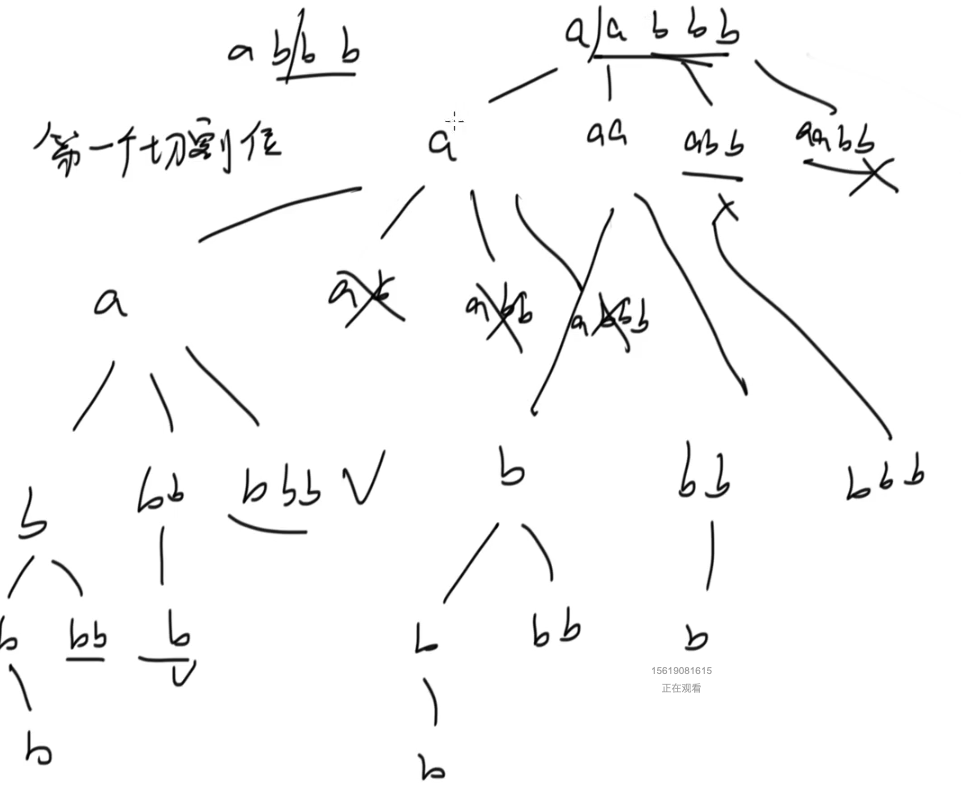 a b/b b
a/a b b b
第一个切割位
a
aa
abb
aabb
a
ab
abb
abbb
b
bb
bbb
b
bb
bbb
b
bb
b
b
bb
b
b
b
15619081615
正在观看